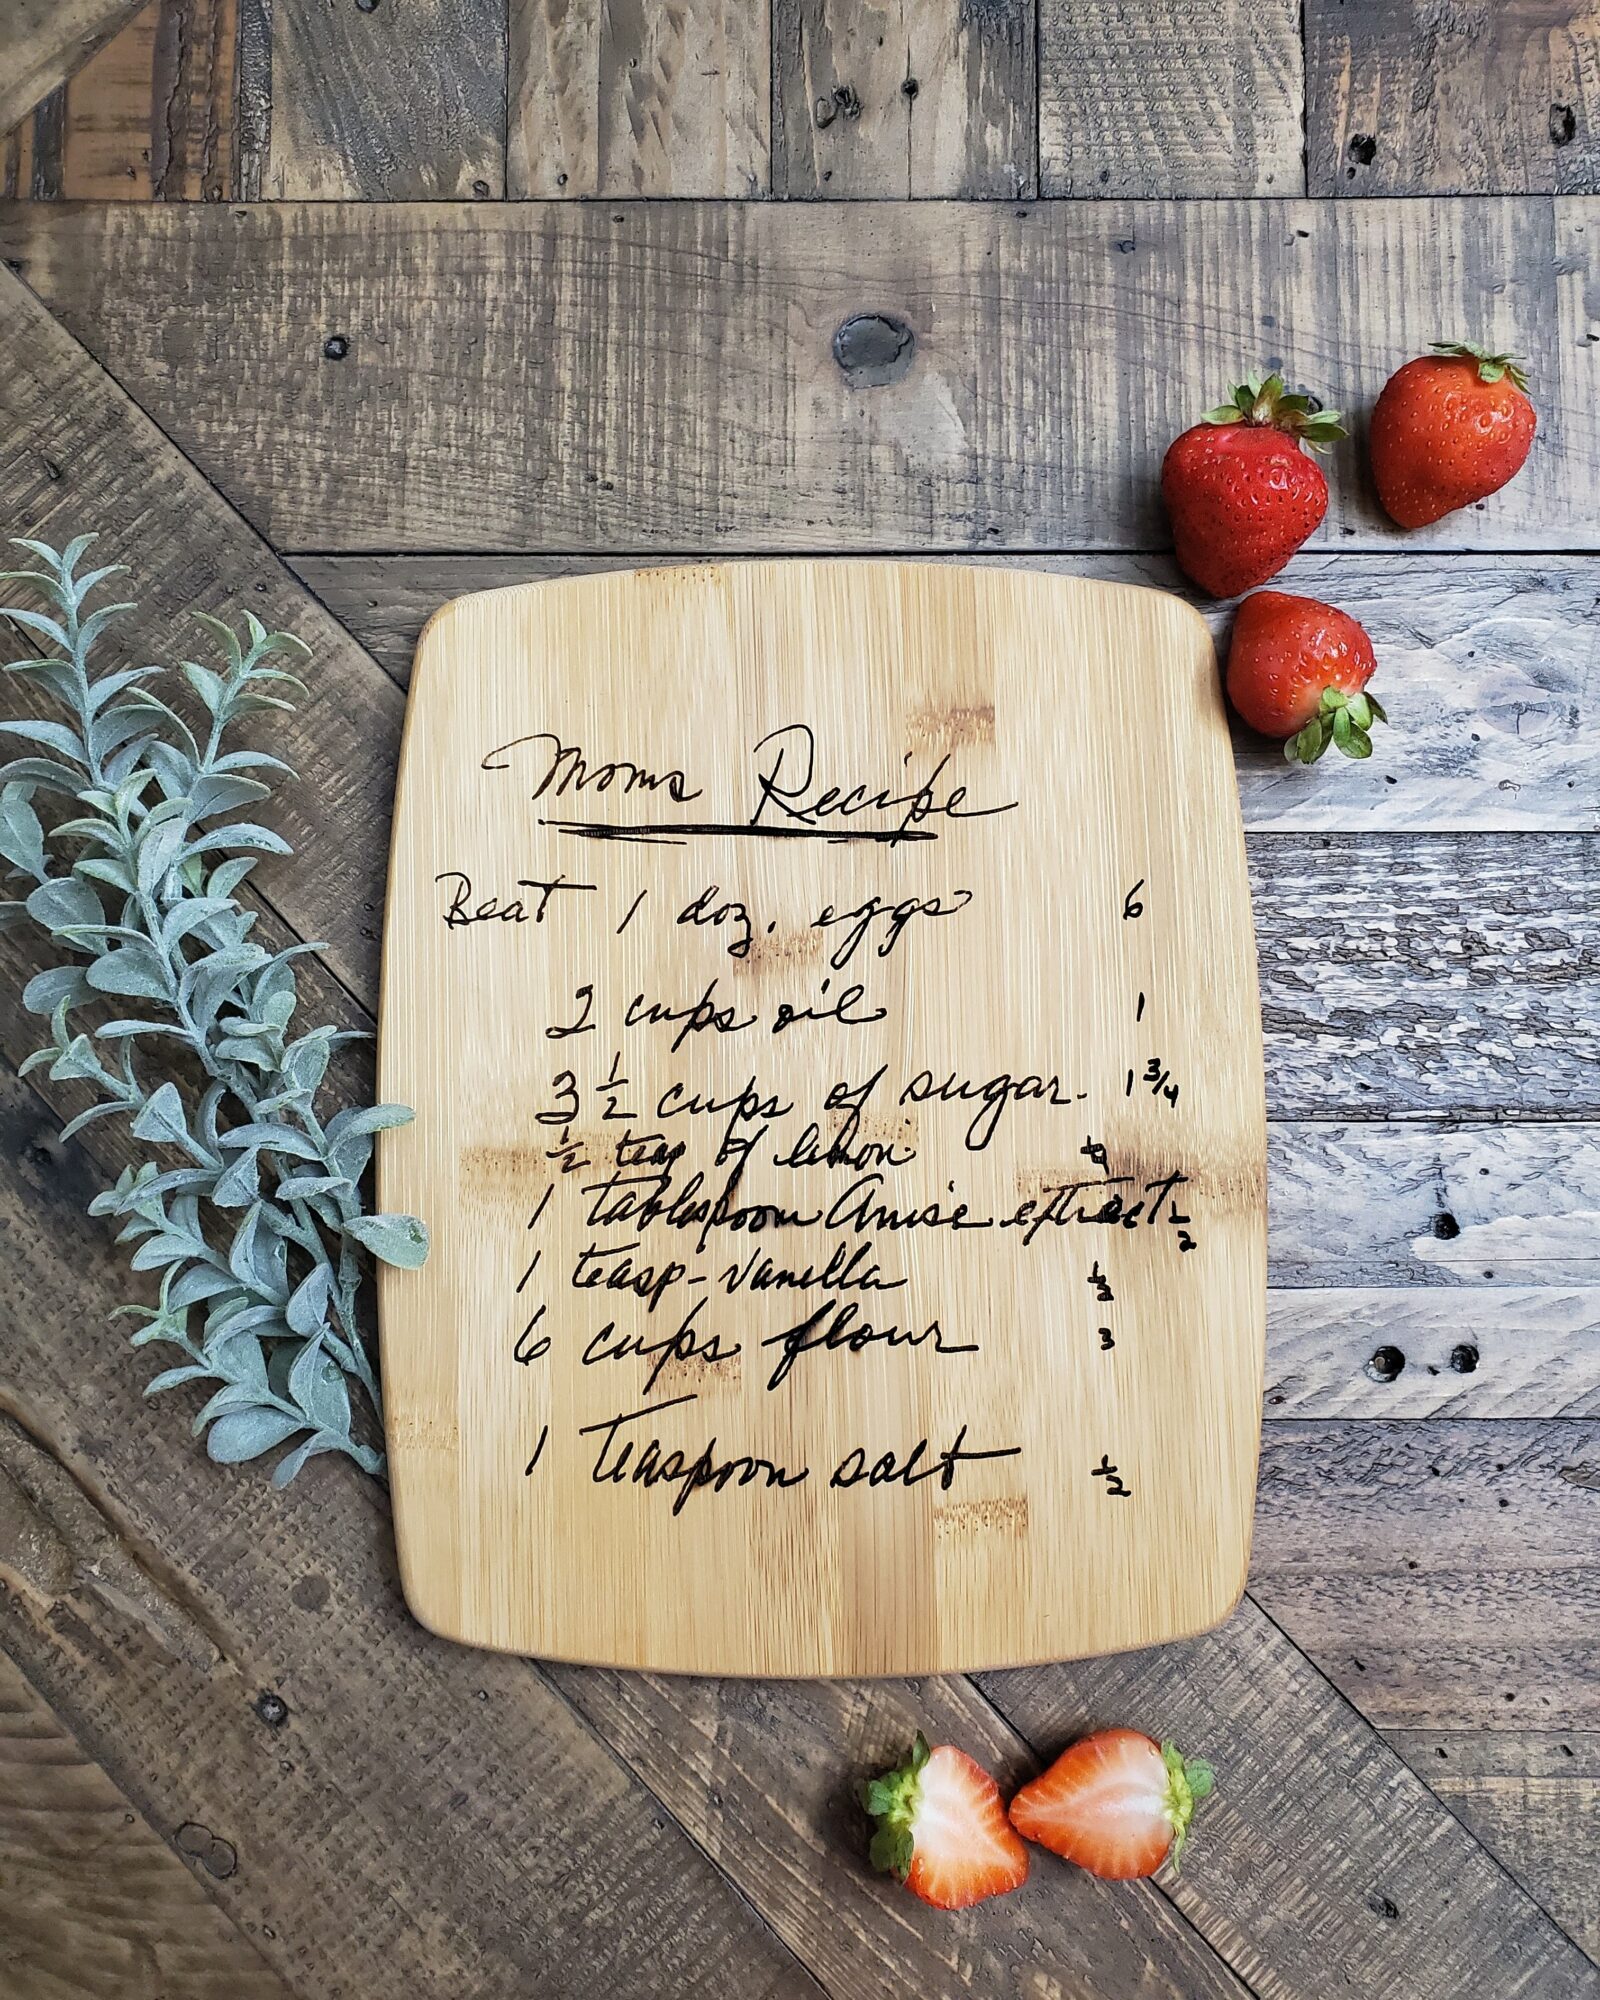 Moms Recipe
Beat 1 doz. eggs 6
2 cups oil 1
3 1/2 cups of sugar. 1 3/4
1/2 teasp of lemon
1 tablespoon Anise extract 1/2
1 teasp-vanilla 1/2
6 cups flour 3
1 Teaspoon salt 1/2